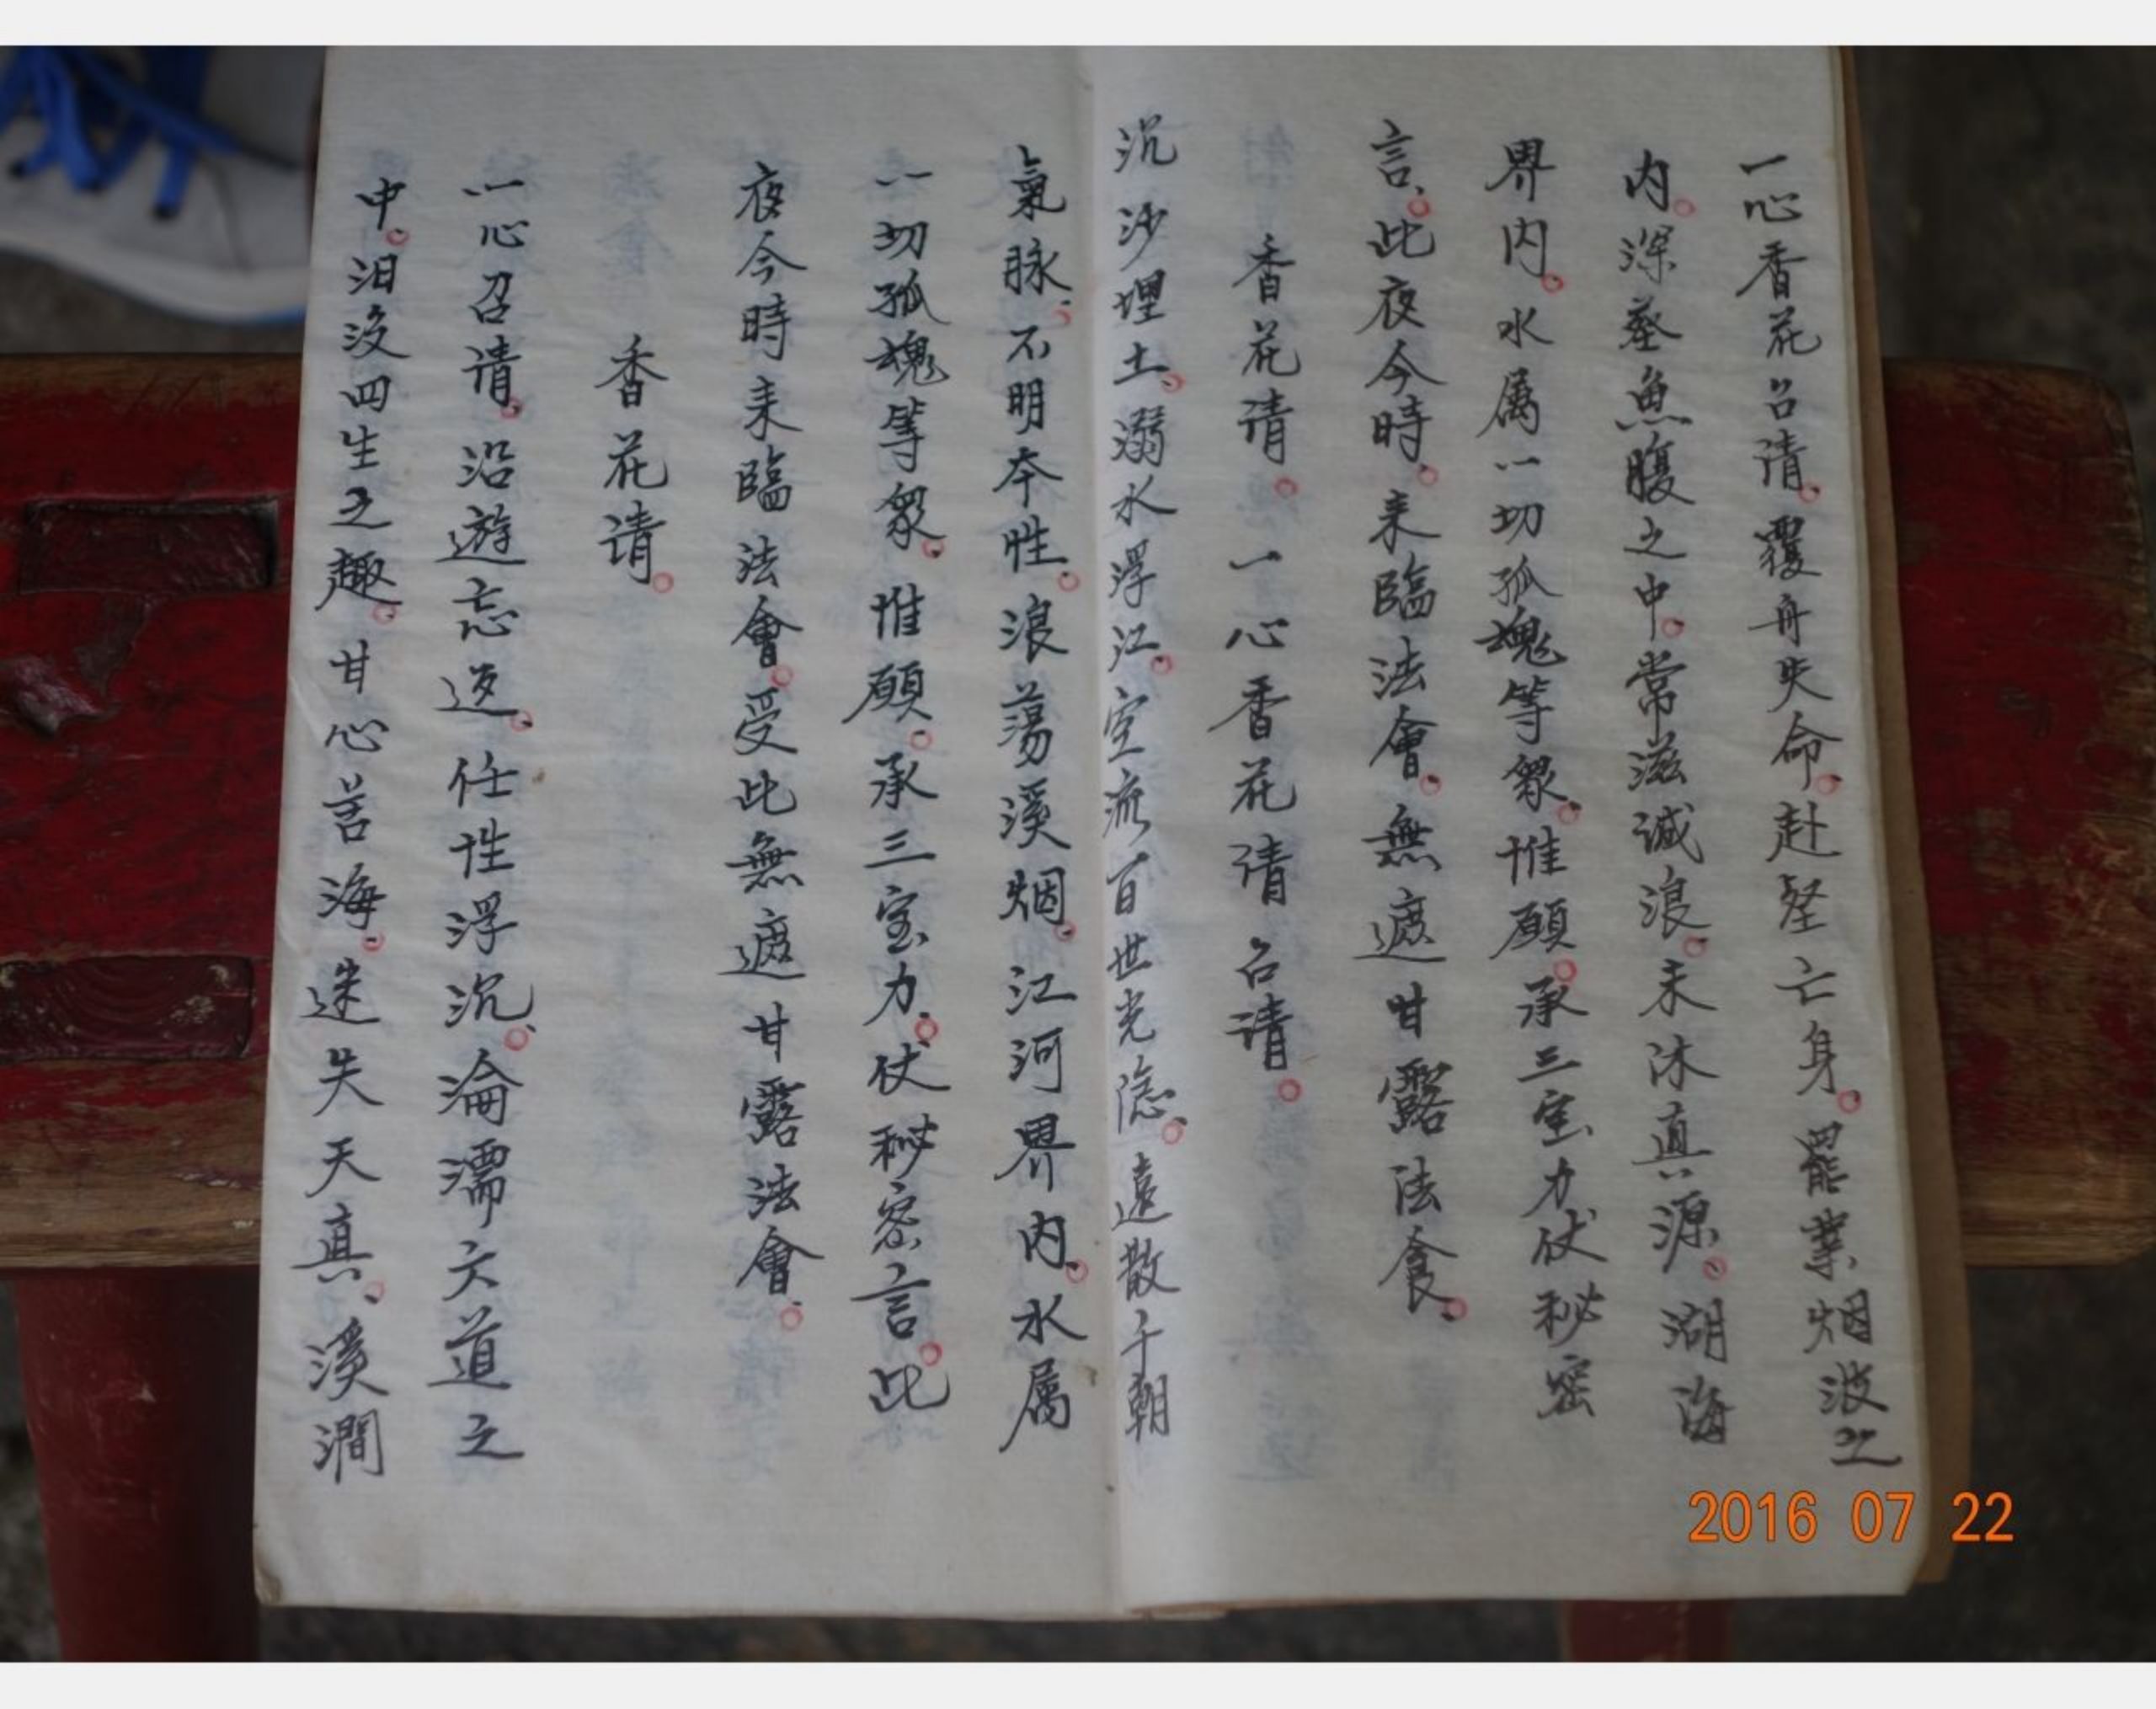 一心香花召请覆舟失命赴壑亡身罷業烟波之
内深葬魚腹之中常滋诚浪未沐真源湖海
界内水属一切孤魂等衆惟願承三宝力仗秘密
言此夜今時来臨法會無遮甘露法食
香花请一心香花请召请
沉沙埋土溺水浮江空流百世光隐遠散千朝
氣脉不明本性浪蕩溪烟江河界内水属
一切孤魂等衆惟願承三宝力仗秘密言此
夜今時来臨法會受此無遮甘露法會
香花请
一心召请沿遊忘返任性浮沉淪濡六道之
中汨没四生之趣甘心苦海迷失天真溪澗
2016 07 22